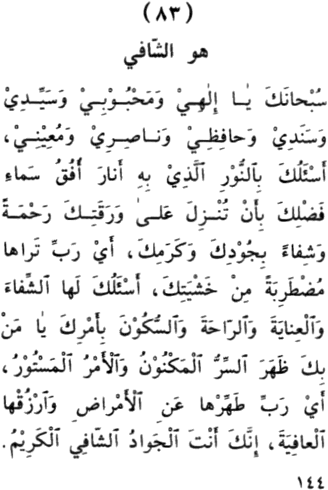 (٨٣)
هو الشّافي
سُبْحانَكَ يٰا إِلٰهِيْ وَمَحْبُوْبِيْ وَسَيِّدِيْ
وَسَنَدِيْ وَحافِظِيْ وَنـاصِـرِيْ وَمُعِيْنِيْ،
أَسْئَلُكَ بِٱلنُّوْرِ ٱلَّذِيْ بِهِ أَنارَ أُفُقُ سَماءِ
فَضْلِكَ بِأَنْ تُنْـزِلَ عَلـىٰ وَرَقَتِـكَ رَحْمَـةً
وَشِفاءً بِجُوْدِكَ وَكَرَمِكَ، أَيْ رَبِّ تَراها
مُضْطَرِبَةً مِنْ خَشْيَتِكَ، أَسْئَلُكَ لَها ٱلشِّفاءَ
وَٱلْعِنايَةَ وَٱلرّاحَةَ وَٱلسُّكُوْنَ بِأَمْرِكَ يٰا مَنْ
بِكَ ظَهَرَ ٱلسِّرُّ ٱلْمَكْنُوْنُ وَٱلْأَمْرُ ٱلْمَسْتُوْرُ،
أَيْ رَبِّ طَهِّرْها عَنِ ٱلْأَمْراضِ وَٱرْزُقْها
ٱلْعافِيَةَ، إِنَّكَ أَنْتَ ٱلْجَوادُ ٱلشّافِي ٱلْكَرِيْمُ.
١٤٤